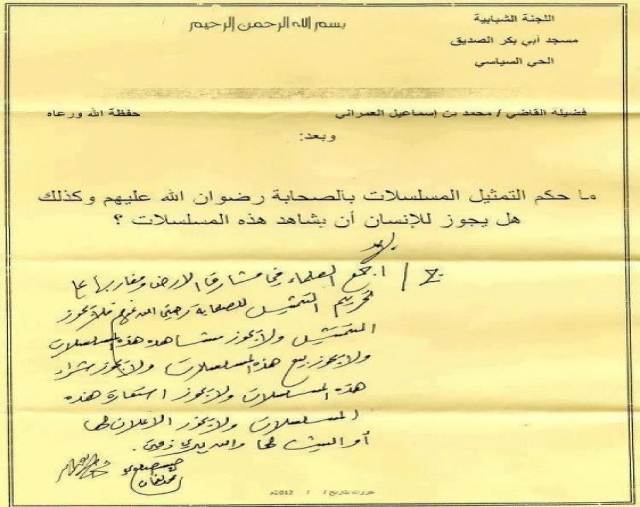 بسم الله الرحمن الرحيم
اللجنة الشبابية
مسجد أبي بكر الصديق
الحي السياسي
فضيلة القاضي / محمد بن إسماعيل العمراني حفظة الله ورعاه
وبعد:
ما حكم التمثيل المسلسلات بالصحابة رضوان الله عليهم وكذلك
هل يجوز للإنسان أن يشاهد هذه المسلسلات ؟
ج / أجمع العلماء في مشارق الارض ومغاربها على
تحريم التمثيل للصحابة رضي الله عنهم فلا يجوز
التمثيل ولا يجوز مشاهدة هذه المسلسلات
ولا يجوز بيع هذه المسلسلات ولا يجوز شراء
هذه المسلسلات ولا يجوز استعارة هذه
المسلسلات ولا يجوز الاعلان لها
أو البث لها والله
حررت بتاريخ / / 2012م